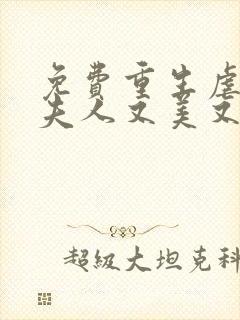 免费重生虐
夫人又美又
超级大坦克科